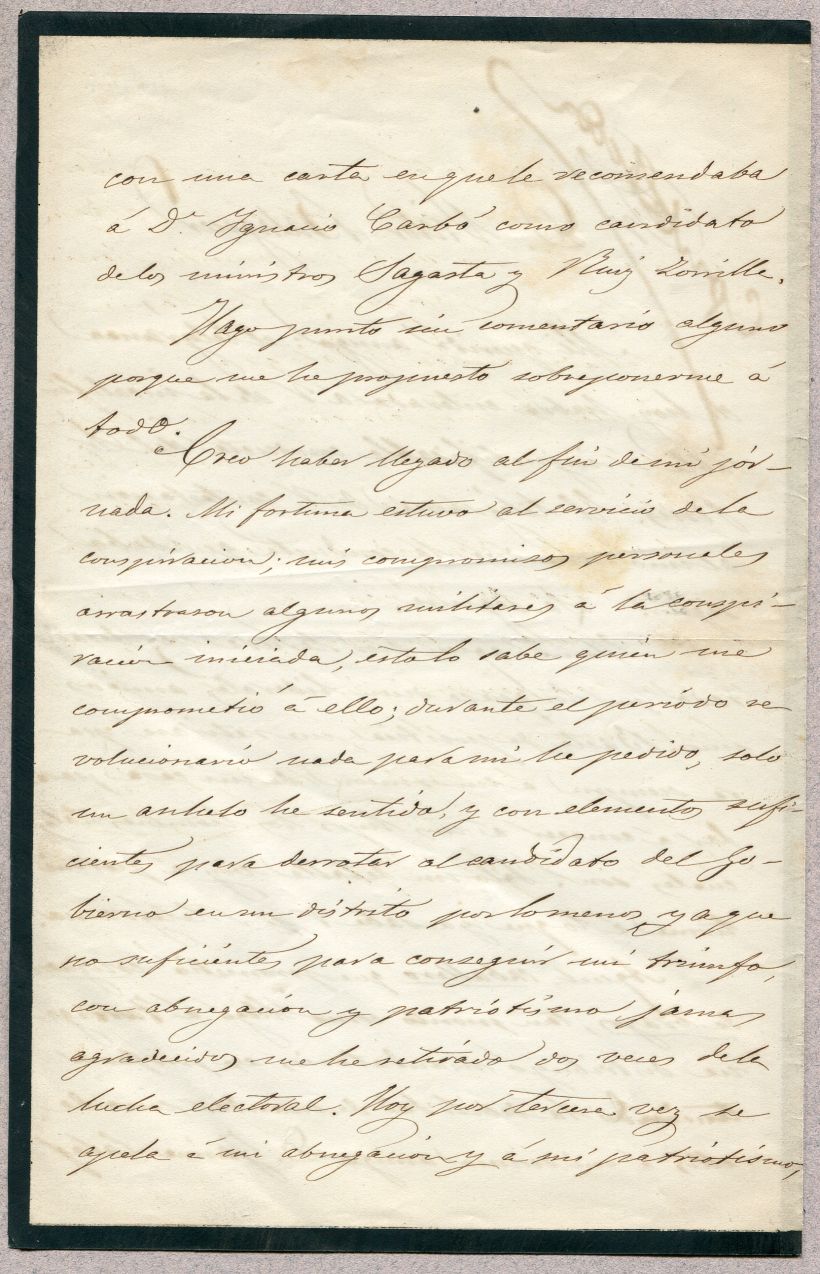 con una carta en que le recomendaba
á Dn Ignacio Carbó como candidato
de los ministros Sagasta y Ruiz Zorrilla.
Hago punto sin comentario alguno
porque me he propuesto sobreponerme á
todo.
Creo haber llegado al fin de mi jor-
nada. Mi fortuna estuvo al servicio de la
conspiracion; mis compromisos personales
arrastraron algunos militares á la conspi-
ración iniciada, esto lo sabe quién me
comprometió á ello; durante el período re-
volucionario nada para mi he pedido, solo
un anhelo he sentido, y con elementos sufi-
cientes para derrotar al candidato del Go-
bierno en un distrito por lo menos, ya que
no suficientes para conseguir mi triunfo,
con abnegación y patriotismo jamas
agradecidos me he retirado dos veces de la
lucha electoral. Hoy por tercera vez se
apela á mi abnegación y á mi patriotismo,